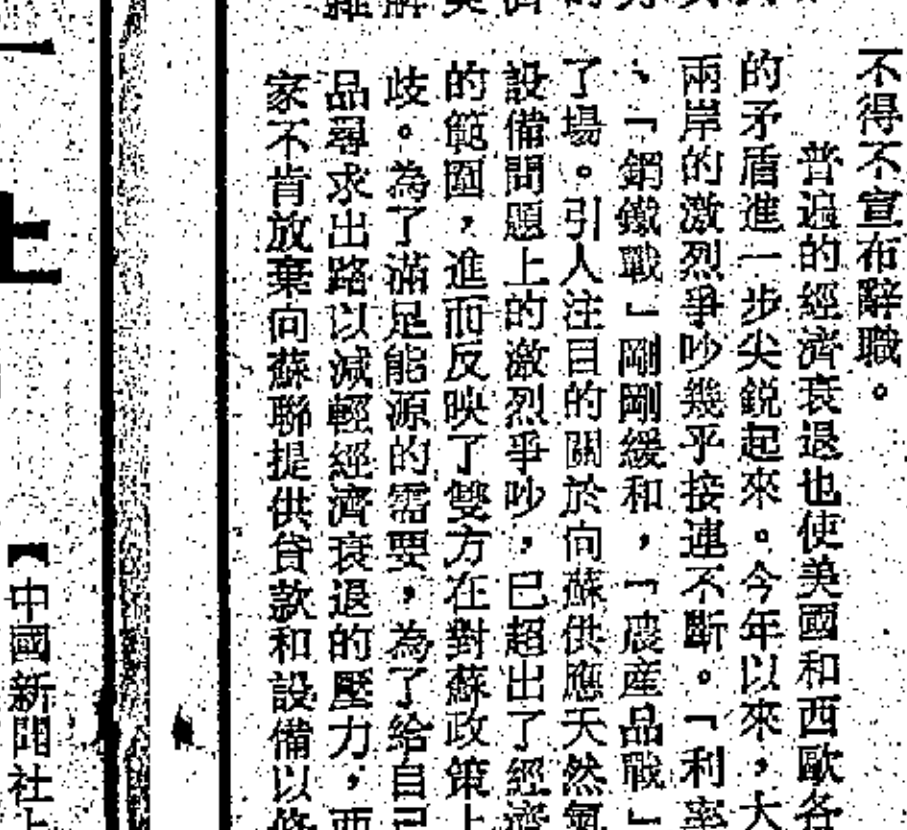 不得不宣布辭職。
普遍的經濟衰退也使美國和西歐各
的矛盾進一步尖銳起來。今年以來，大
兩岸的激烈爭吵幾乎接連不斷。「利率
、「鋼鐵戰」剛剛緩和，「農產品戰」
了場。引人注目的關於向蘇供應天然氣
設備問題上的激烈爭吵，已超出了經濟
的範圍，進而反映了雙方在對蘇政策上
歧。為了滿足能源的需要，為了給自己
品尋求出路以減輕經濟衰退的壓力，西
家不肯放棄向蘇聯提供貸款和設備以修
【中國新聞社上